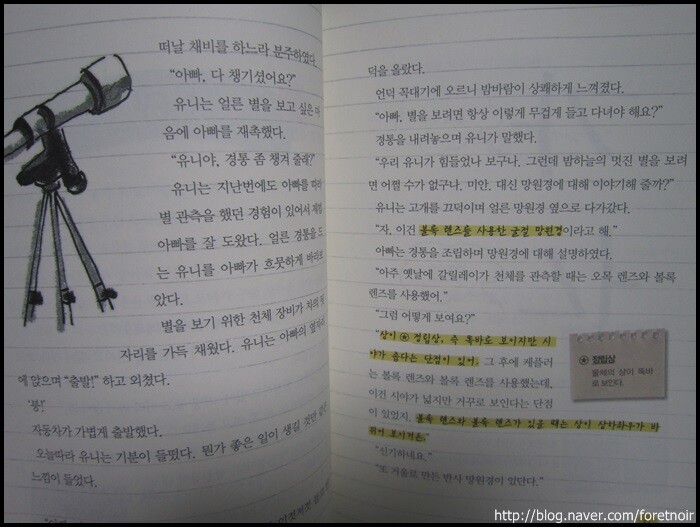 떠날 채비를 하느라 분주하였다.
“아빠, 다 챙기셨어요?”
유니는 얼른 별을 보고 싶은 마
음에 아빠를 재촉했다.
“유니야, 경통 좀 챙겨 줄래?”
유니는 지난번에도 아빠를 따라
별 관측을 했던 경험이 있어서 제법
아빠를 잘 도왔다. 얼른 경통을 드
는 유니를 아빠가 흐뭇하게 바라보
았다.
별을 보기 위한 천체 장비가 차의 뒷
자리를 가득 채웠다. 유니는 아빠의 옆자리
에 앉으며 “출발!” 하고 외쳤다.
‘붕!’
자동차가 가볍게 출발했다.
오늘따라 유니는 기분이 들떴다. 뭔가 좋은 일이 생길 것만 같은
느낌이 들었다.
덕을 올랐다.
언덕 꼭대기에 오르니 밤바람이 상쾌하게 느껴졌다.
“아빠, 별을 보려면 항상 이렇게 무겁게 들고 다녀야 해요?”
경통을 내려놓으며 유니가 말했다.
“우리 유니가 힘들었나 보구나. 그런데 밤하늘의 멋진 별을 보려
면 어쩔 수가 없구나. 미안. 대신 망원경에 대해 이야기해 줄까?”
유니는 고개를 끄덕이며 얼른 망원경 옆으로 다가갔다.
“자, 이건 볼록 렌즈를 사용한 굴절 망원경이라고 해.”
아빠는 경통을 조립하며 망원경에 대해 설명하였다.
“아주 옛날에 갈릴레이가 천체를 관측할 때는 오목 렌즈와 볼록
렌즈를 사용했어.”
“그럼 어떻게 보여요?”
“상이 정립상, 즉 똑바로 보이지만 시
야가 좁다는 단점이 있어. 그 후에 케플러
는 볼록 렌즈와 볼록 렌즈를 사용했는데,
이건 시야가 넓지만 거꾸로 보인다는 단점
이 있었지. 볼록 렌즈와 볼록 렌즈가 있을 때는 상이 상하좌우가 바
뀌어 보이거든.”
“신기하네요.”
“또 거울로 만든 반사 망원경이 있단다.”
정립상
물체의 상이 똑바
로 보인다.
http://blog.naver.com/foretnoir